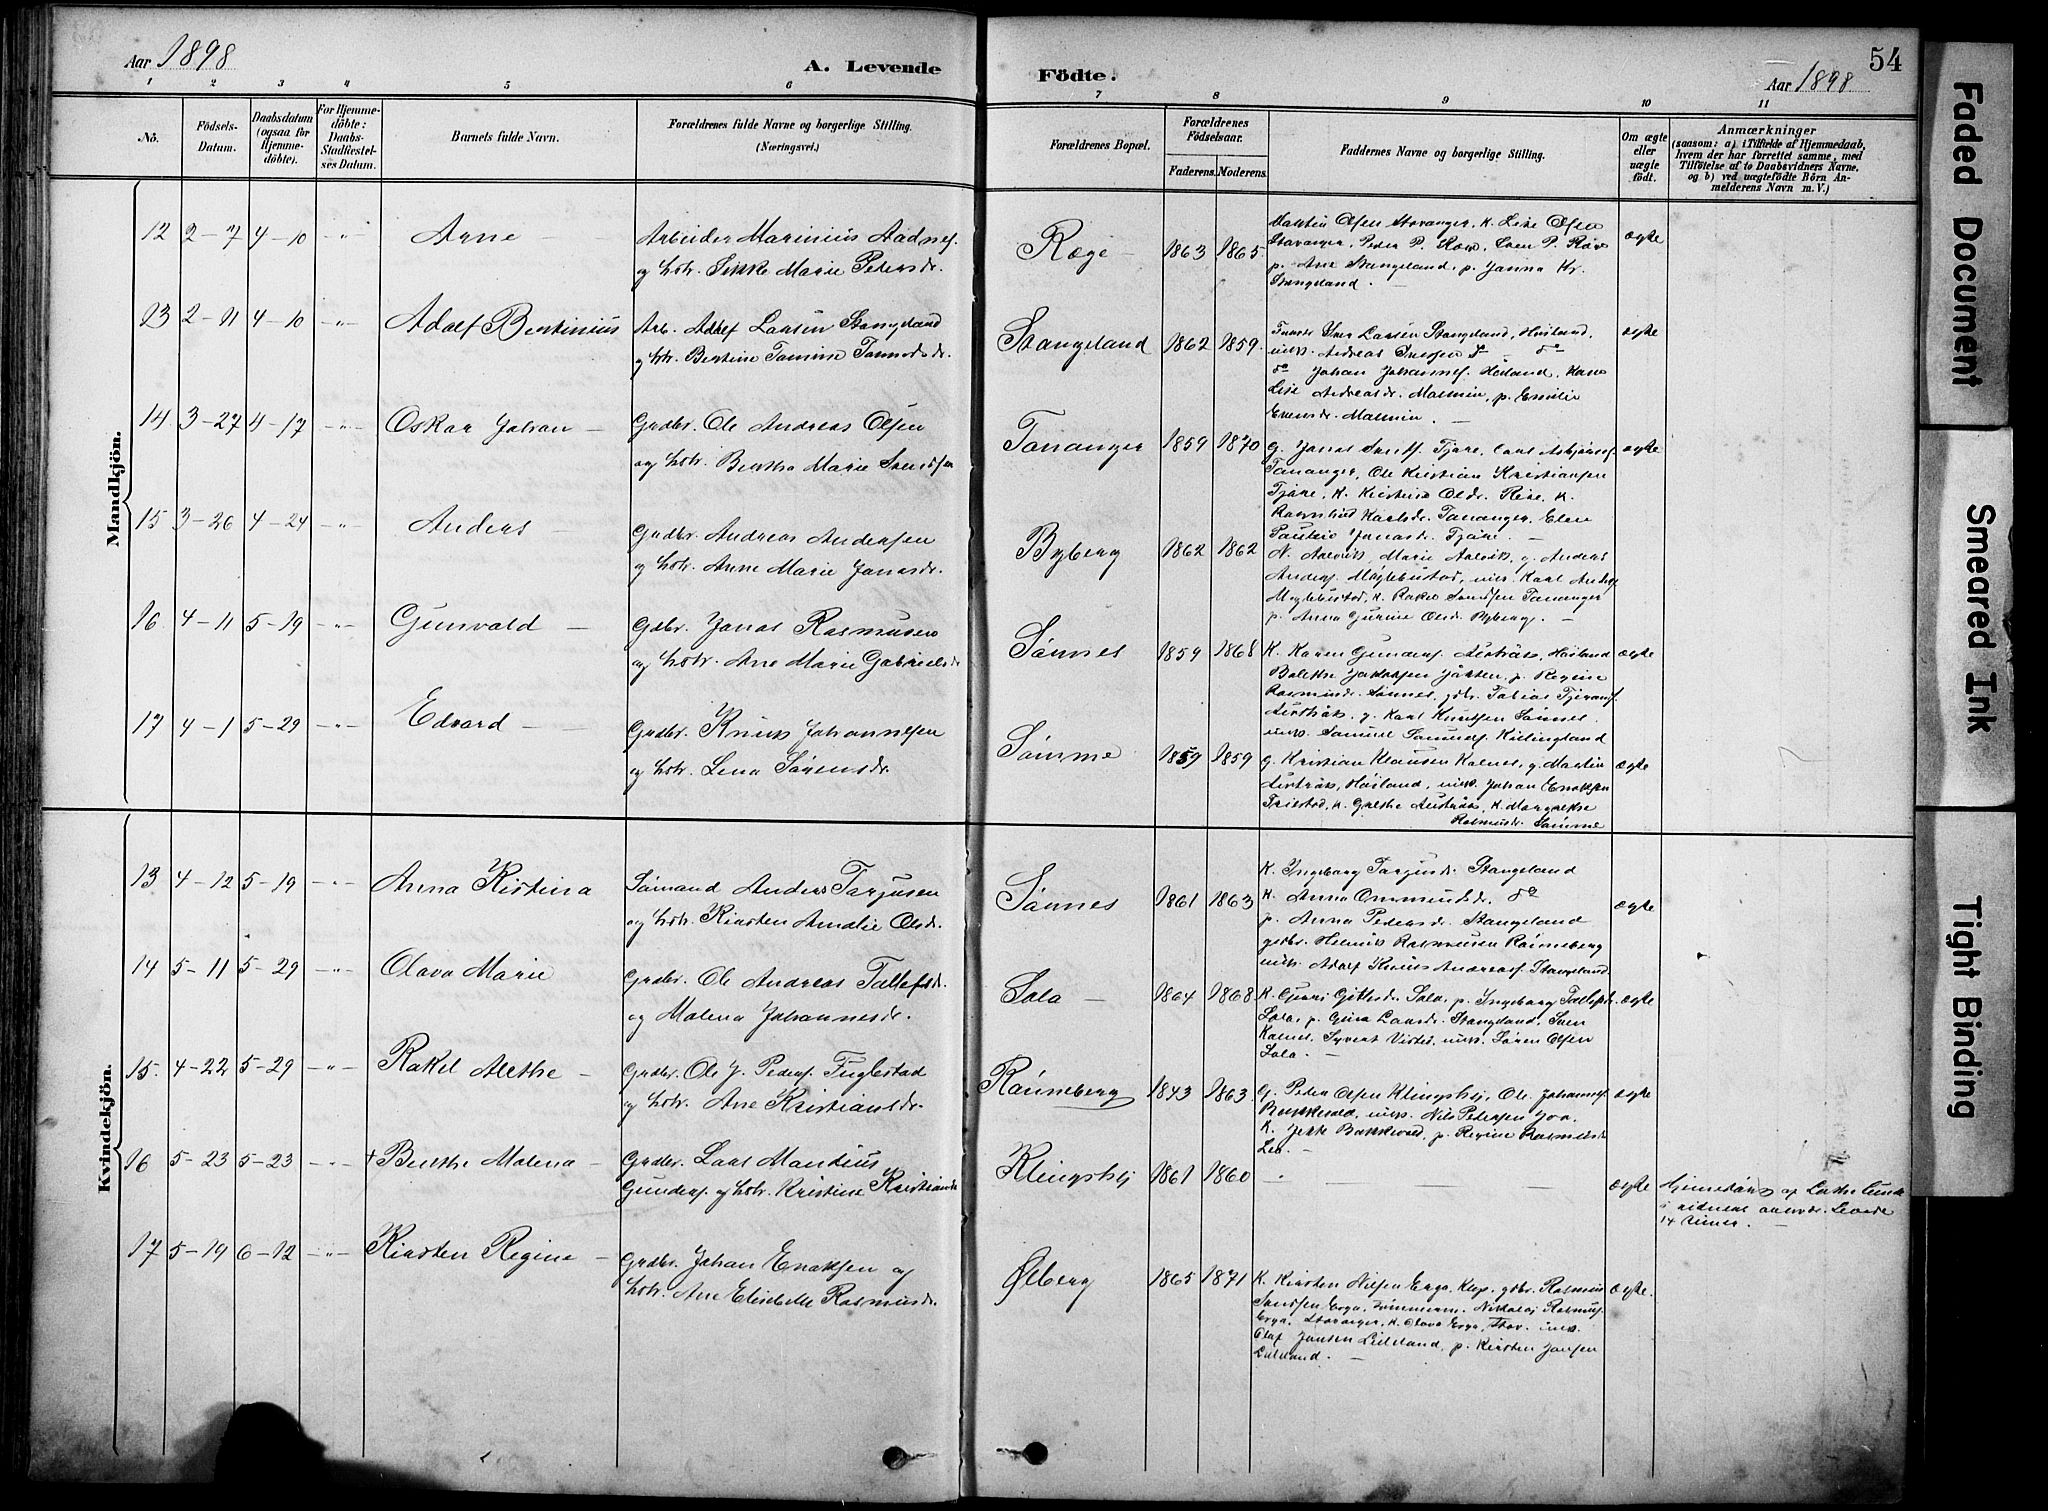 Aar 1898
A. Levende
Födte.
Aar 1898
54
1 2 3 4 5 6 7 8 9 10 11
Nö.
Födsels-
Datum.
Daabsdatum
(ogsaa for
Hjemme-
döbte).
For Hjemme-
döbte:
Daabs-
Stadfæstel-
ses Datum.
Barnets fulde Navn.
Forældrenes fulde Navne og borgerlige Stilling.
(Næringsvei.)
Forældrenes Bopæl.
Forældrenes
Födselsaar.
Faderens. Moderens.
Faddernes Navne og borgerlige Stilling.
Om ægte
eller
uægte
födt.
Anmærkninger
(saasom: a) i Tilfælde af Hjemmedaab,
hvem der har forrettet samme, med
Tilföielse af to Daabsvidners Navne,
og b) ved uægtefödte Börn An-
melderens Navn m. V.)
Mandkjön.
12 2-7 4-10 -"- Arne - Arbeider Marinius Aadnes.
og hstr. Sikke Marie Pedersdr.
Ræge - 1863 1865.
Martin Olsen Stavanger, K. Lise Olsen
Stavanger, Peder P. Ræge, Sven P. Ræge
p. Ane Stangeland, p. Janna Kr.
Stangeland. -
ægte
13 2-11 4-10 -"- Adolf Bertinius Arb. Adolf Larsen Stangeland
og hstr. Bertine Tomine Tønnesdr.
Stangeland 1862 1859.
Larsen Stangeland, Høiland,
ungk. Andreas S - do
do Johan Johannes. Høiland, Kone
Lise Andreasdr. Malmin, p. Emilie
Evensdr. Malmin. -
ægte
14 3-27 4-17 -"- Oskar Johan - Grdbr. Ole Andreas Olsen
og hstr. Bertha Marie Svendsen
Tananger 1859 1870
g. Jonas Tjøre, Carl Asbjørns.
Tananger, Ole Kristian Kristiansen
Tjøre, K. Kirstine Olsdr. Rise, K.
Karlsdr. Tananger, Elen
Pauline Jonasdr. Tjøre. -
ægte
15 3-26 4-24 -"- Anders - Grdbr. Andreas Andersen
og hstr. Anne Marie Jonasdr.
Byberg 1862 1862
N. Aalvik, Marie Aalvik, g. Anders
Anders. Meglebustad, ungk. Karl Anders.
Meglebustad, K. Rakel Svendsen Tananger
p. Anna Gurine Olsdr. Byberg. -
16 4-11 5-19 -"- Gunvald - Gdbr. Jonas Rasmusen
og hstr. Ane Marie Gabrielsdr.
Sønnes 1859 1868
K. Karen Gunders. Austråt, Høiland
Bolette Jakobsen Jåtten, p. Regine
Rasmusdr. Sønnes, gdbr. Tobias
Austråt, g. Karl Knutsen Sømme.
ungk. Samuel Samuels. Killingland
ægte
17 4-1 5-29 -"- Edvard - Grdbr. Knut Johannesen
og hstr. Lena Sørensdr.
Sømme 1859 1859
g. Kristian Klausen Kalnes, g. Martin
Austråt, Høiland, ungk. Johan Enoksen
Friestad, K. Grethe Austråt, K. Margrethe
Rasmusdr. Sømme
ægte
Kvindekjön.
13 4-12 5-19 -"- Anna Kirstina Sømand Anders Tarjusen
og hstr. Kirsten Amalie Olsdr.
Sønnes 1861 1863
K. Ingeborg Tarjusdr. Stangeland
K. Anna Ommundsdr. do
p. Anna Pedersdr. Stangeland
grdbr. Henrik Rasmusen Rønneberg
ungk. Adolf Knut Andreas. Stangeland.
ægte
14 5-11 5-29 -"- Olava Marie Grdbr. Ole Andreas Tollefsdr.
og Malena Johannesdr.
Sola - 1864 1868
K. Guri Gittesdr. Sola, p. Ingeborg Tollefsdr.
Sola, p. Gina Larsdr. Stangeland, Sven
Kalnes, Syvert Vistes, ungk. Søren Olsen
Sola. -
ægte
15. 4-22 5-29 -"- Rakel Alethe - Grdbr. Ole J. Peders. Fuglestad
og hstr. Ane Kristiansdr.
Rønneberg 1843 1863
G. Peder Olsen Klingshej, Ole Johannes.
Bakkevold, ungk. Nils Pedersen Joa,
K. Jekke Bakkevold, p. Regine Rasmusdr.
Lea. -
ægte
16 5-23 5-23 -"- + Berthe Malena - Grdbr. Lars Mandius
Gunders. og hstr. Kristine Kristiansdr.
Klingshej 1861 1860 - - -
ægte
Hjemedøbt af
14 Timer. -
17 5-19 6-12 -"- Kirsten Regine - Grdbr. Johan Enoksen og
hstr. Ane Elisabeth Rasmusdr.
Ølberg 1865 1871
K. Kirsten Nilsen Erga, Klep, gdbr. Rasmus
Erga, Tømmerm. Nikolaj Rasmus.
Erga, Stavanger, K. Olava Erga, Stav. ungk.
Olaf Jansen Lideland, p. Kirsten Jansen
Lideland. -
ægte.
Faded Document
Smeared Ink
Tight Binding